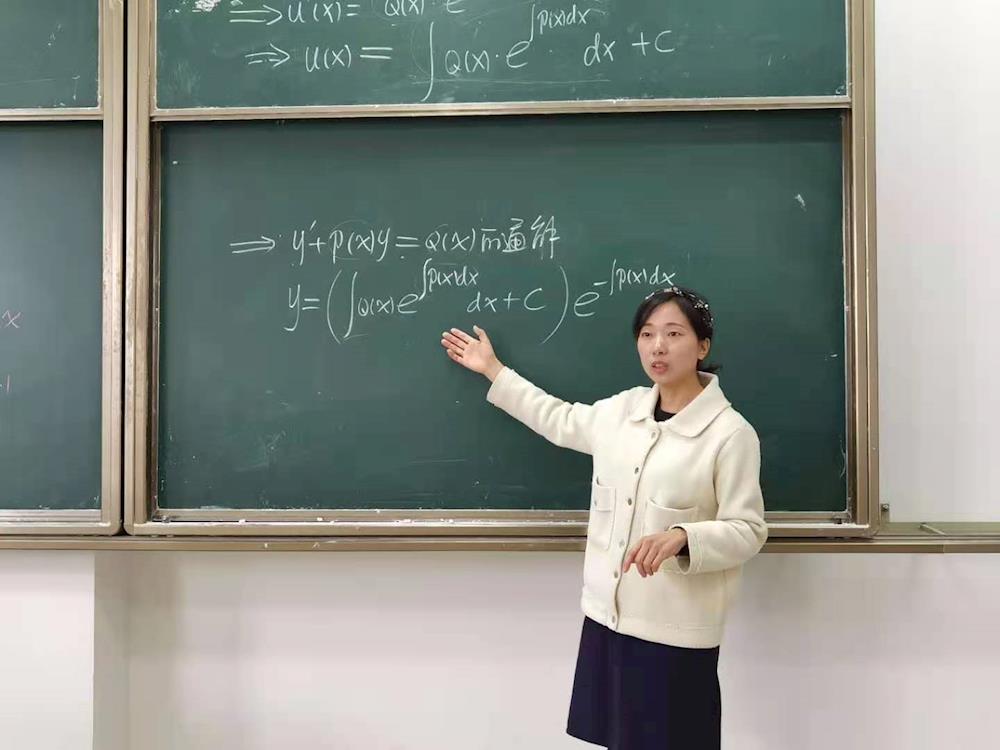 ⇒ u'(x) = Q(x)·e
⇒ u(x) = ∫Q(x)·e^{∫p(x)dx} dx + C
⇒ y' + p(x)y = Q(x)的通解
y = (∫Q(x)e^{∫p(x)dx} dx + C) e^{-∫p(x)dx}